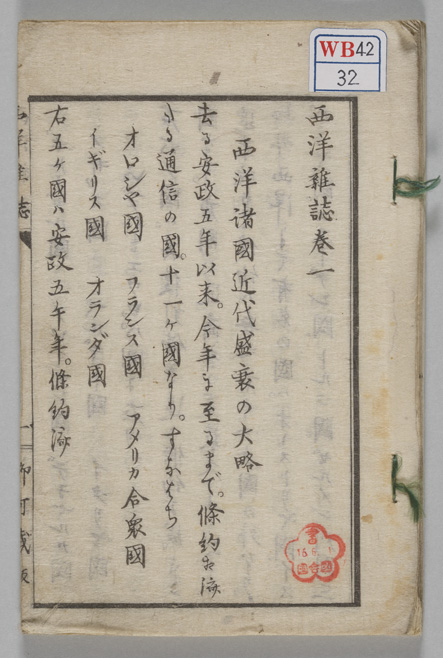 WB42
32
西洋雑誌巻一
西洋諸國近代盛衰の大略
去る安政五年以来。今年に至るまで。條約相済
たる通信の國。十一ヶ國なり。すなはち
オロシヤ國 フランス國 アメリカ合衆國
イギリス國 オランダ國
右五ヶ國ハ安政五午年。條約済
西洋雑誌